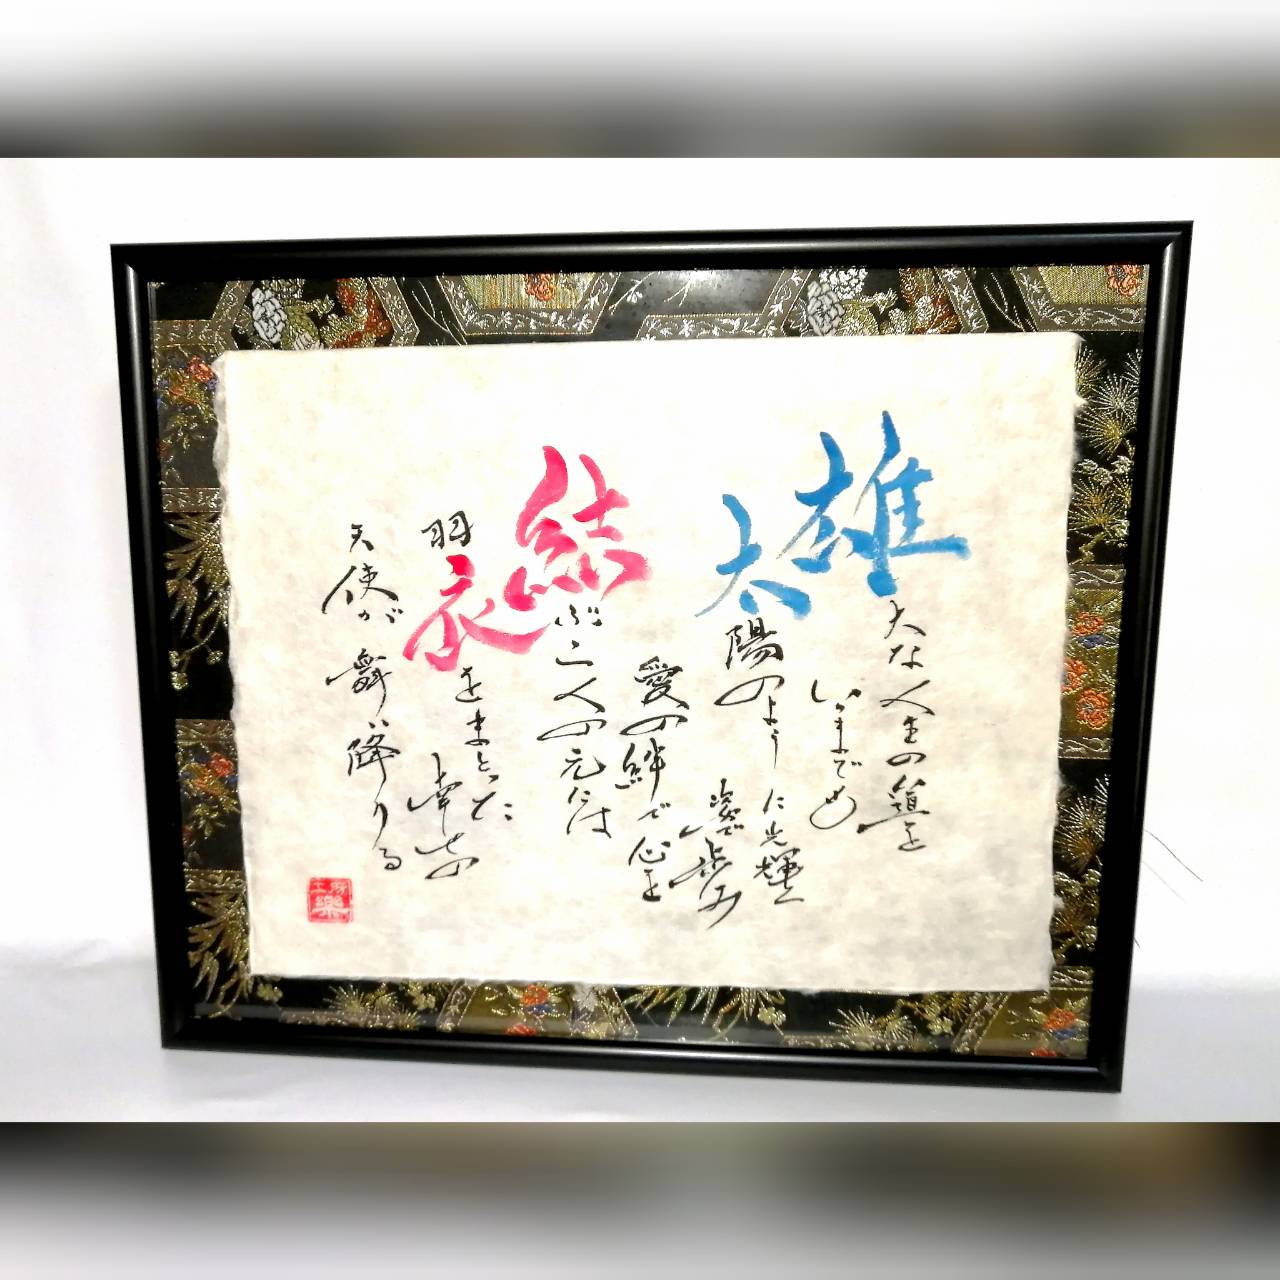 雄大な人生の道を
いつまでも
太陽のように光輝く
姿で歩み
愛の絆で心を
結ぶ二人の元には
羽衣をまとった
幸せの
天使が舞い降りる
工房
樂